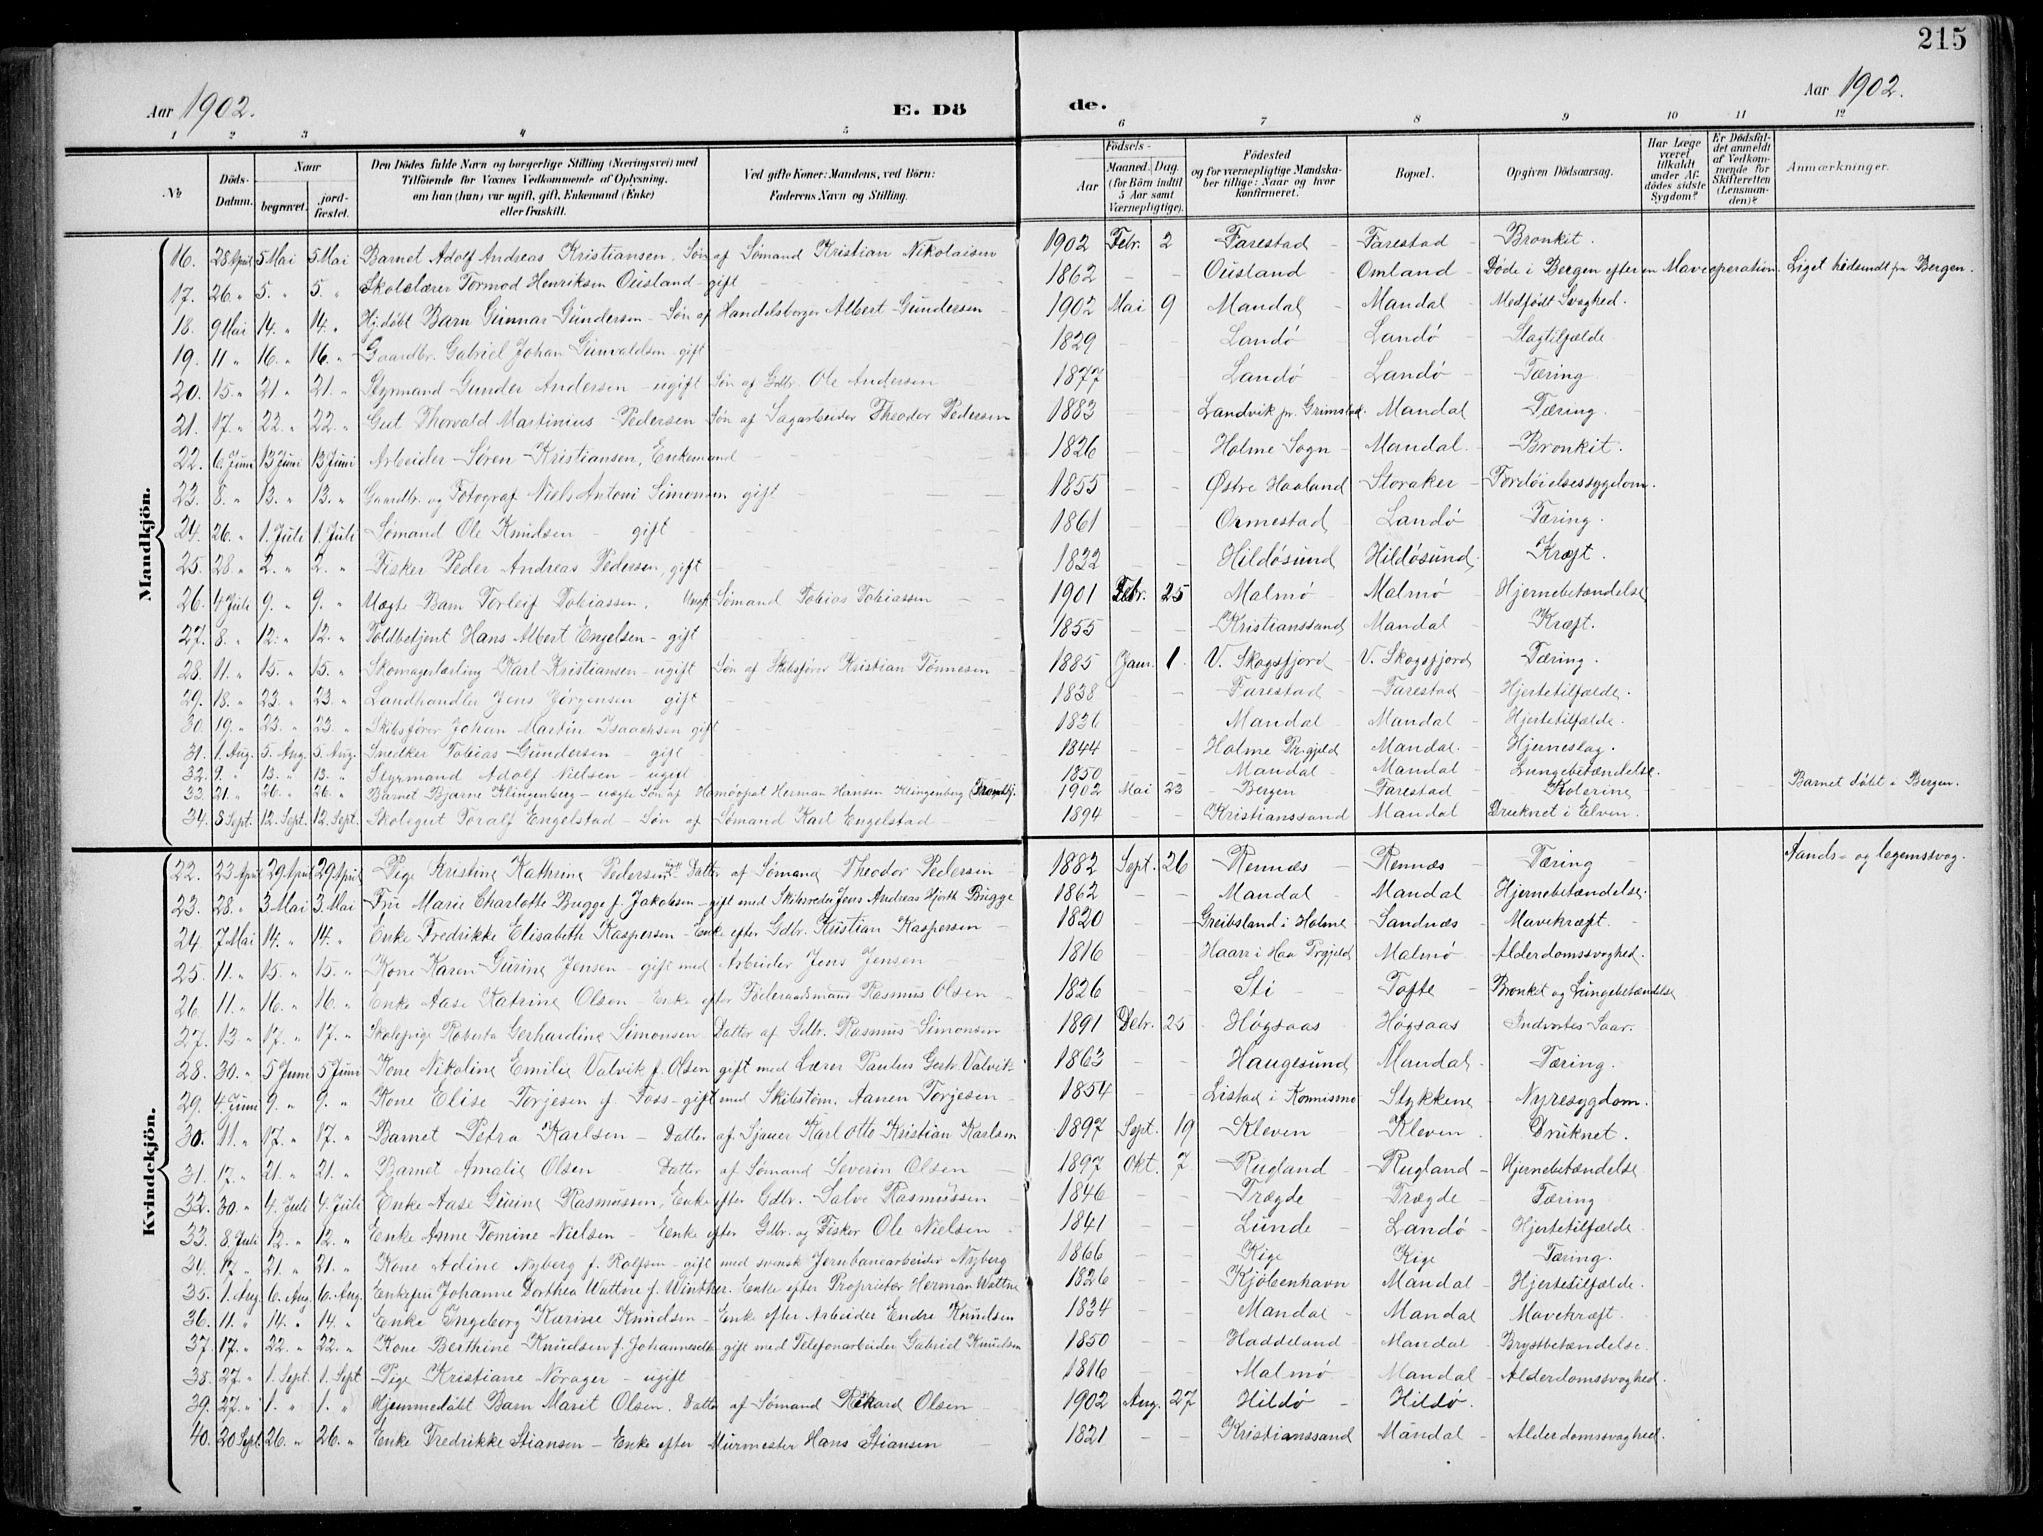 215
Aar 1902. E. Dö de. Aar 1902.
1 2 3 4 5 6 7 8 9 10 11 12
№ Döds-Datum. Naar begravet. jordfæstet. Den Dödes fulde Navn og borgerlige Stilling (Næringsvei) med Tilföiende for Voxnes Vedkommende af Oplysning, om han (hun) var ugift, gift, Enkemand (Enke) eller fraskilt. Ved gifte Koner: Mandens, ved Börn: Faderens Navn og Stilling. Födsels- Aar Maaned. Dag. (for Börn indtil 5 Aar samt Værnepligtige). Födested og for værnepligtige Mandskaber tillige: Naar og hvor konfirmeret. Bopæl. Opgiven Dödsaarsag. Har Læge været tilkaldt under Afdödes sidste Sygdom? Er Dödsfaldet anmeldt af Vedkommende for Skifteretten (Lensmanden)? Anmærkninger.
Mandkjön.
16. 28 April 5 Mai 5 Mai Barnet Adolf Andreas Kristiansen, Søn af Sømand Kristian Nikolaisen 1902 Febr. 2 Farestad Farestad Bronkit.
17. 26. " 5. " 5. " Skolelærer Tormod Henriksen Ousland gift 1862 Ousland Omland Døde i Bergen efter en Maveoperation. Liget hidsendt fra Bergen.
18. 9 Mai 14. " 14. " Hj.døbt Barn Gunnar Gundersen - Søn af Handelsborger Albert Gundersen 1902 Mai 9 Mandal Mandal Medfødt Svaghed.
19. 11 " 16. " 16. " Gaardbr. Gabriel Johan Gunvaldsen - gift 1829 Landø Landø Slagtilfælde
20. 15. " 21 " 21. " Styrmand Gunder Andersen - ugift Søn af Gdbr. Ole Andersen 1877 Landø Landø Tæring
21. 17. " 22. " 22. " Gut Thorvald Martinius Pedersen Søn af Sagarbeider Theodor Pedersen 1883 Landvik pr. Grimstad. Mandal Tæring.
22. 6. Juni 13 Juni 13 Juni Arbeider Søren Kristiansen, Enkemand 1826 Holme Sogn Mandal. Bronkit.
23. 8. " 13. " 13. " Gaardbr. og Fotograf Niels Antoni Simonsen gift 1855 Østre Haaland Storaker Fordøielsessygdom.
24. 26. " 1. Juli 1. Juli Sømand Ole Knudsen gift 1861 Ormestad Landø Tæring.
25. 28. " 2. " 2. " Fisker Peder Andreas Pedersen, gift 1832 Hildøsund Hildøsund Kræft.
26. 4 Juli 9. " 9. " Uægte Barn Torleif Tobiassen. Ungk. Sømand Tobias Tobiassen 1901 Febr. 25 Malmø Malmø Hjernebetændelse
27. 8. " 12. " 12. " Toldbetjent Hans Albert Engelsen - gift 1855 Kristianssand Mandal Kræft.
28. 11. " 15. " 15. " Skomagerlærling Karl Kristiansen - ugift Søn af Skibsfører Kristian Tønnesen 1885 Janr. 1. V. Skogsfjord V. Skogsfjord Tæring.
29. 18. " 23. " 23. " Landhandler Jens Jørgensen gift 1838 Farestad Farestad Hjertetilfælde.
30. 19. " 23. " 23. " Skibsfører Johan Martin Isaachsen gift 1831 Mandal Mandal Hjertetilfælde.
31. 1. Aug. 5. Aug. 5. Aug. Snedker Tobias Gundersen gift 1844 Holme Pr.gjeld Mandal. Hjerneslag.
32. 9. " 13. " 13. " Styrmand Adolf Nielsen - ugift 1850 Mandal Mandal Lungebetændelse.
33. 21. " 26. " 26. " Barnet Bjarne Klingenberg - uægte Søn af Homøopat Herman Hansen Klingenberg (Trondhj. 1902 Mai 23 Bergen Farestad Kolerine Barnet døbt i Bergen.
34. 8 Sept. 12. Sept. 12. Sept. Skolegut Toralf Engelstad - Søn af Sømand Karl Engelstad 1894 Kristianssand Mandal Druknet i Elven.
Kvindekjön.
22. 23 April 29 April 29 April Pige Kristine Kathrine Pedersen Datter af Sømand Theodor Pedersen 1882 Sept. 26 Rennæs Rennæs Tæring Aands- og legemssvag.
23. 28. " 3 Mai 3. Mai Fru Marie Charlotte Bugge f. Jakobsen - gift med Skibsreder Jens Andreas Hjorth Bugge 1862 Mandal Mandal Hjernebetændelse.
24. 7 Mai 14. " 14. " Enke Fredrikke Elisabeth Kaspersen - Enke efter Gdbr. Kristian Kaspersen 1820 Greibsland i Holme Sandnæs Mavekræft.
25. 11. " 15. " 15. " Kone Karen Gurine Jensen - gift med Arbeider Jens Jensen 1816 Haarr i Haa Prgjeld Malmø Alderdomssvaghed.
26. 11. " 16. " 16. " Enke Aase Katrine Olsen - Enke efter Føderaadsmand Rasmus Olsen 1826 Sti Tofte Bronkit og Lungebetændelse
27. 13 " 17. " 17. " Skolepige Roberta Gerhardine Simonsen Datter af Gdbr. Rasmus Simonsen 1891 Debr. 25 Høgsaas Høgsaas Indvortes Saar.
28. 30. " 5 Juni 5 Juni Kone Nikoline Emilie Valvik f. Olsen gift med Lærer Paulus Gestr. Valvik 1863 Haugesund Mandal Tæring.
29. 4. Juni 9. " 9. " Kone Elise Torjesen f. Foss - gift med Skibstøm. Aanen Torjesen 1854 Listad i Konnismo Stykkene Nyresygdom.
30. 11. " 17. " 17. " Barnet Petra Karlsen - Datter af Sjauer Karl Otto Kristian Karlsen 1897 Sept. 19 Kleven Kleven Druknet.
31. 17. " 21. " 21. " Barnet Amalie Olsen Datter af Sømand Severin Olsen 1897 Okt. 7 Rugland Rugland Hjernebetændelse
32. 30. " 4. Juli 4. Juli Enke Aase Gurine Rasmussen, Enke efter Gdbr. Salve Rasmussen 1846 Trægde Trægde Tæring
33. 8 Juli 12. " 12. " Enke Anne Tomine Nielsen - Enke efter Gdbr. og Fisker Ole Nielsen 1841 Lunde Landø Hjertetilfælde.
34. 17. " 21. " 21. " Kone Adine Nyberg f. Rolfsen - gift med svensk Jernbanearbeider Nyberg 1866 Kige Kige Tæring.
35. 1. Aug. 6. Aug. 6. Aug. Enkefru Johanne Dorthea Wattne f. Winther. Enke efter Proprietær Herman Wattne 1826 Kjøbenhavn Mandal Hjertetilfælde.
36. 11. " 14. " 14. " Enke Ingeborg Karine Knudsen Enke efter Arbeider Endre Knudsen 1834 Mandal Mandal Mavekræft.
37. 17. " 22. " 22. " Kone Berthine Knudsen f. Johannesdtr. gift med Telefonarbeider Gabriel Knudsen 1850 Haddeland Mandal Brystbetændelse.
38. 27. " 1. Sept. 1. Sept. Pige Kristiane Norager - ugift 1816 Malmø Mandal Alderdomssvaghed.
39. 27. " 1. " 1. " Hjemmedøbt Barn Marit Olsen. Datter af Sømand Rikard Olsen 1902 Aug. 27 Hildø Hildø.
40. 20 Sept. 26. " 26. " Enke Fredrikke Stiansen - Enke efter Murmester Hans Stiansen 1821 Kristianssand Mandal Alderdomssvaghed.